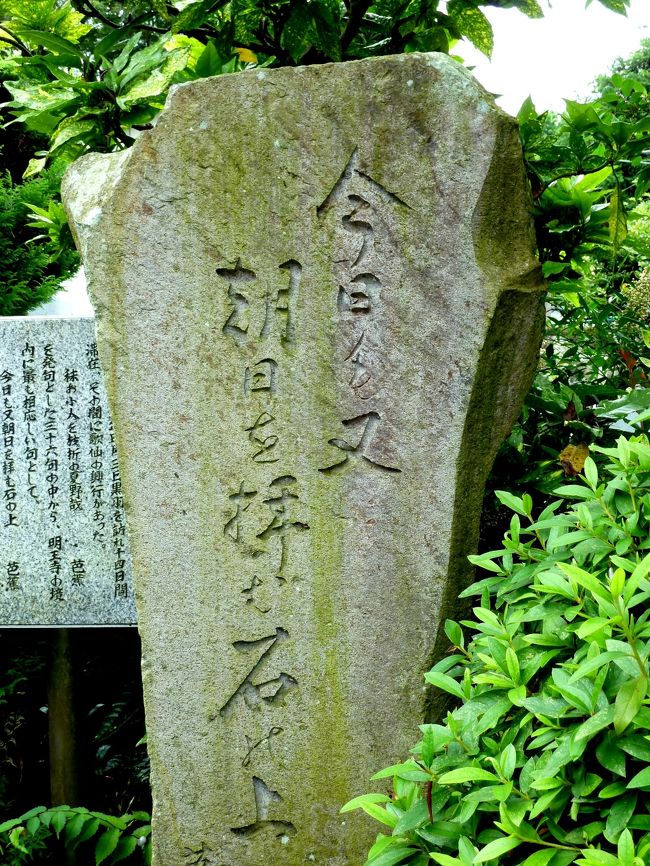 今日も又
朝日を拝む石の上
芭
三日黒羽を訪れ十四日間
滞在、その間に歌仙の興行があった。
秣おふ人を枝折の夏野哉 芭蕉
を発句とした三十六句の中から、明王寺の境
内に最も相応しい句として、
今日も又朝日を拝む石の上 芭蕉